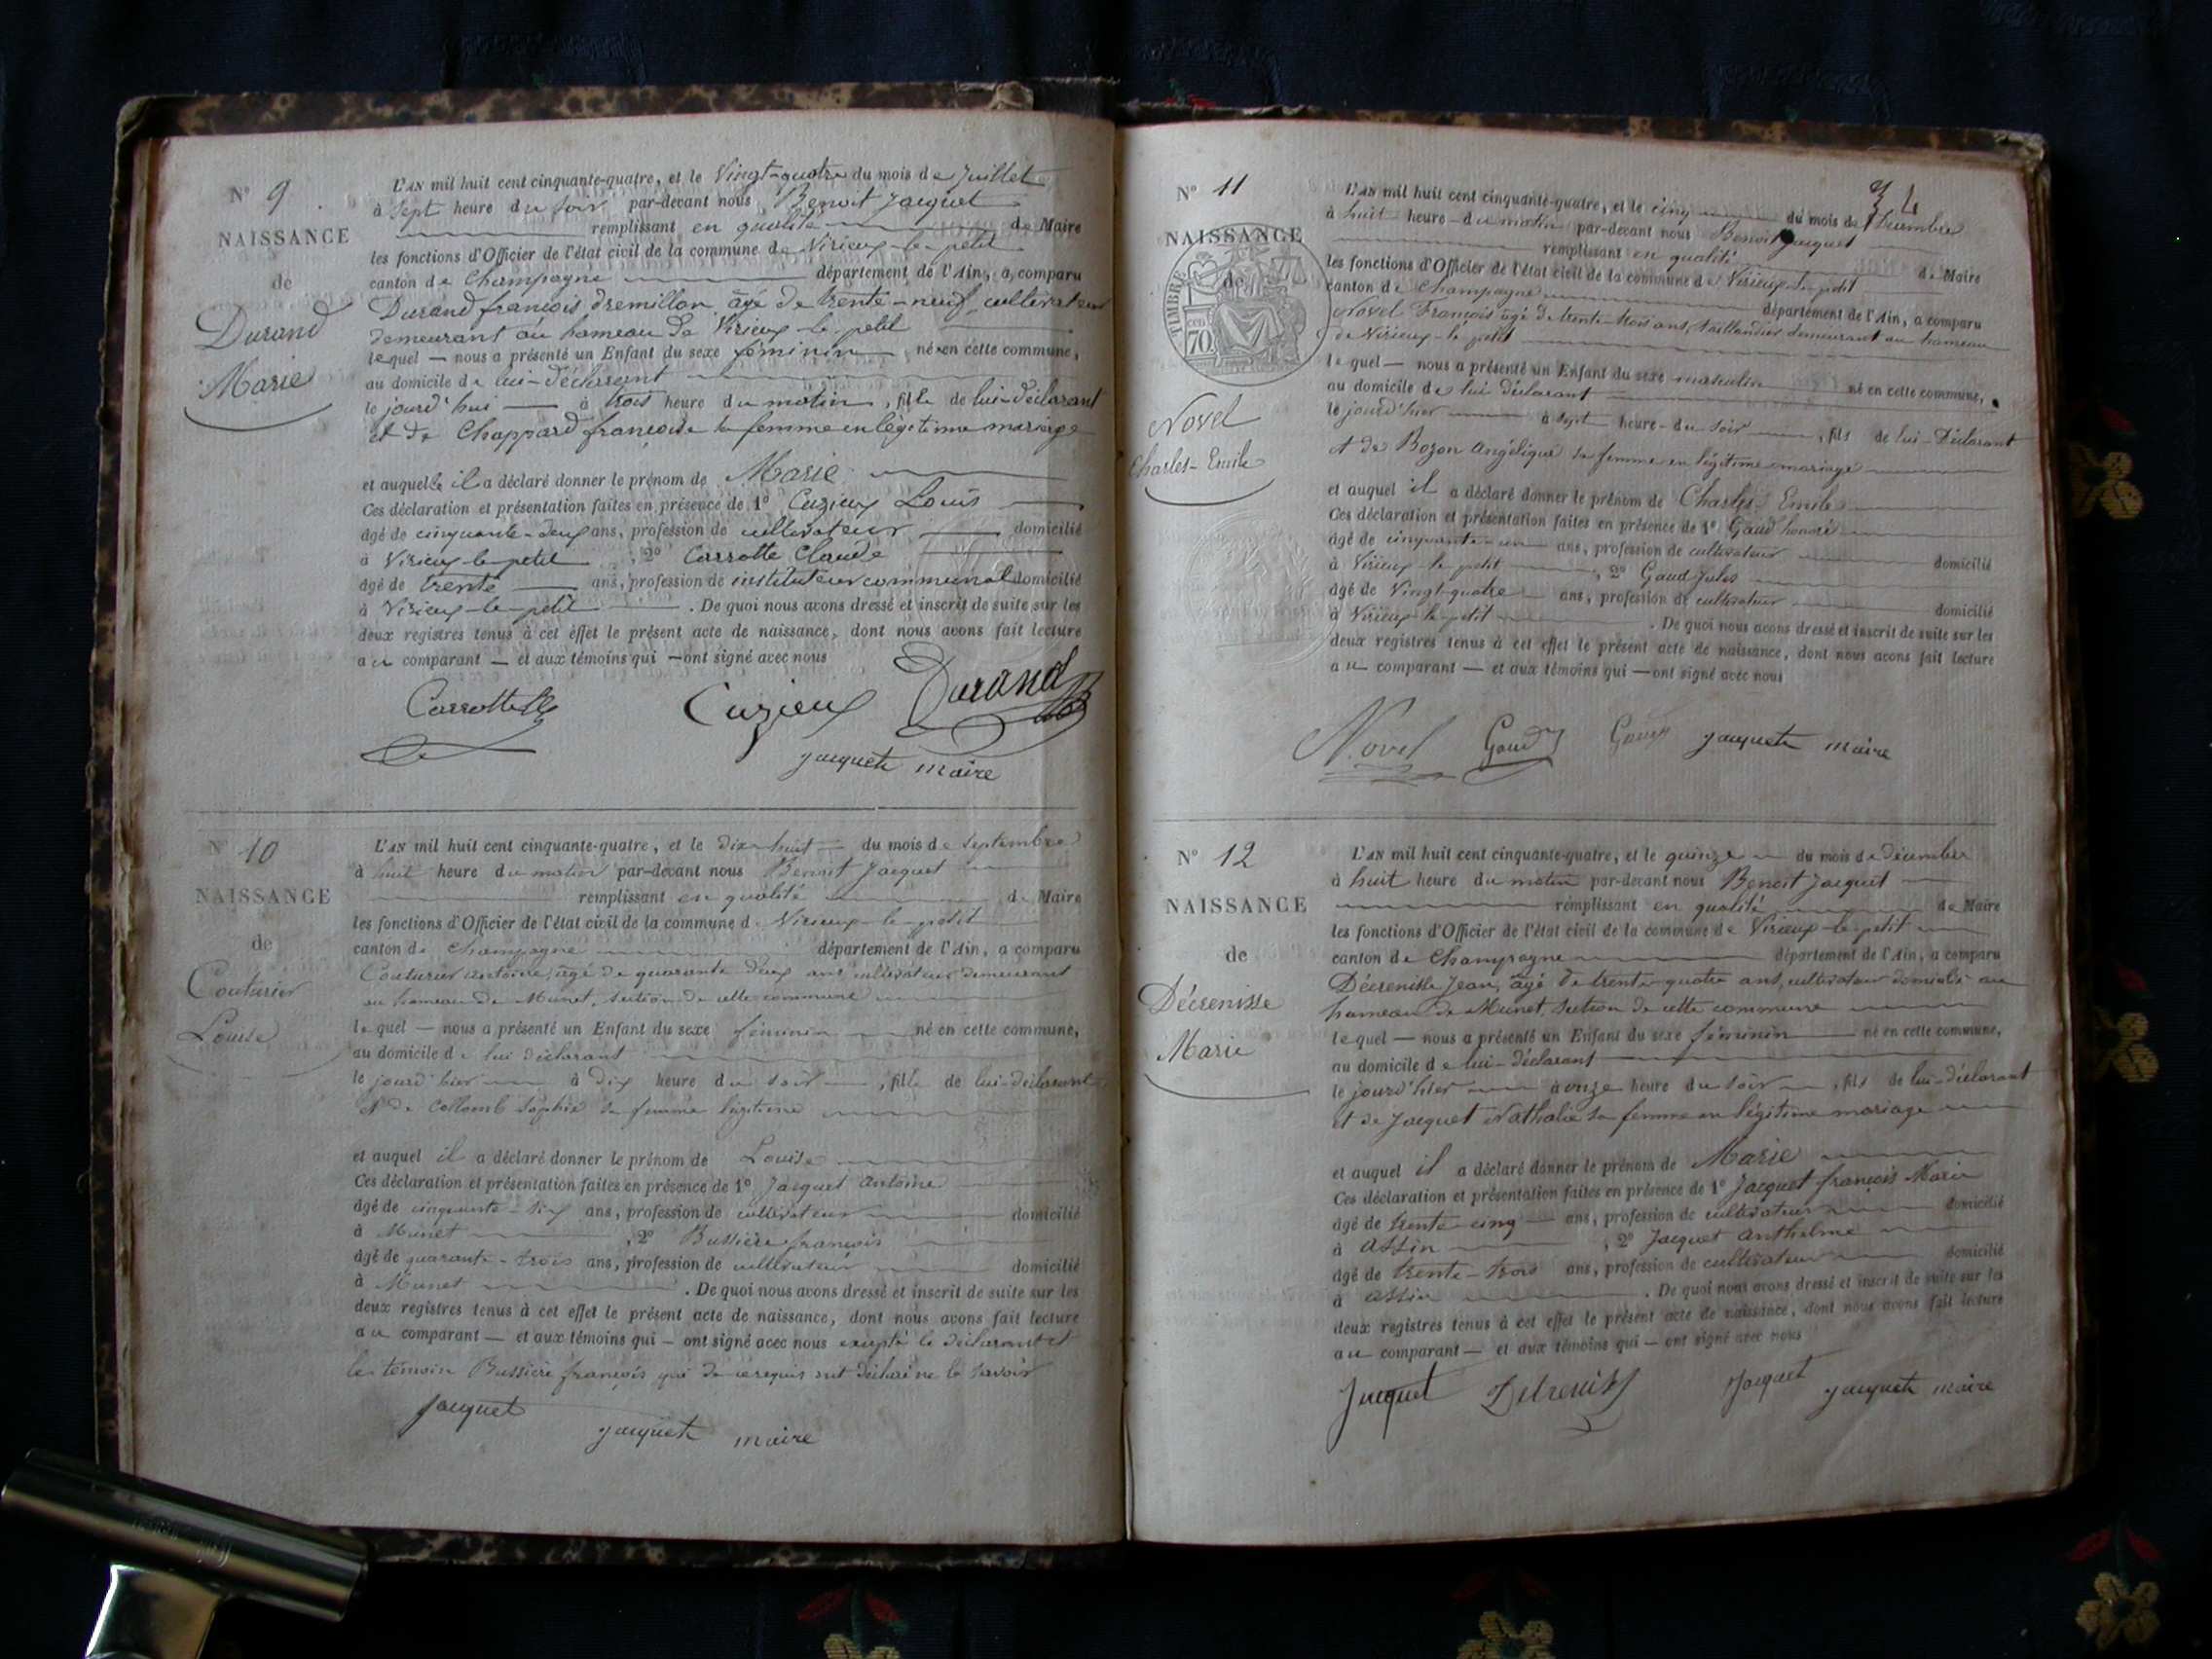 N° 9
NAISSANCE
de
Durand
Marie
L'AN mil huit cent cinquante-quatre, et le Vingt-quatre du mois de Juillet
à Sept heure du soir par-devant nous Benoit Jacquet
remplissant en qualité de Maire
les fonctions d'Officier de l'état civil de la commune de Virieux-le-petit
canton de Champagne département de l'Ain, a comparu
Durand françois dremillon âgé de trente-neuf, cultivateur
demeurant au hameau de Virieux-le-petit
lequel — nous a présenté un Enfant du sexe féminin né en cette commune,
au domicile de lui-déclarant
le jourd'hui à trois heure du matin, fille de lui-déclarant
et de Chappard françoise sa femme en légitime mariage
et auquelle il a déclaré donner le prénom de Marie
Ces déclaration et présentation faites en présence de 1° Cuzieux Louis
âgé de cinquante-deux ans, profession de cultivateur domicilié
à Virieux-le-petit, 2° Carrotte Claude
âgé de trente ans, profession de instituteur communal domicilié
à Virieux-le-petit. De quoi nous avons dressé et inscrit de suite sur les
deux registres tenus à cet effet le présent acte de naissance, dont nous avons fait lecture
au comparant — et aux témoins qui — ont signé avec nous
Carrotte Cuzieux Durand
Jacquet maire
N° 10
NAISSANCE
de
Couturier
Louise
L'AN mil huit cent cinquante-quatre, et le dix-huit du mois de Septembre
à huit heure du matin par-devant nous Benoit Jacquet
remplissant en qualité de Maire
les fonctions d'Officier de l'état civil de la commune de Virieux-le-petit
canton de Champagne département de l'Ain, a comparu
Couturier antoine, âgé de quarante deux ans cultivateur demeurant
au hameau de Munet, section de cette commune
lequel — nous a présenté un Enfant du sexe féminin né en cette commune,
au domicile de lui déclarant
le jourd'hier à dix heure du soir, fille de lui-déclarant
et de Collomb Sophie sa femme légitime
et auquel il a déclaré donner le prénom de Louise
Ces déclaration et présentation faites en présence de 1° Jacquet antoine
âgé de cinquante-six ans, profession de cultivateur domicilié
à Munet, 2° Bussière françois
âgé de quarante-trois ans, profession de cultivateur domicilié
à Munet. De quoi nous avons dressé et inscrit de suite sur les
deux registres tenus à cet effet le présent acte de naissance, dont nous avons fait lecture
au comparant — et aux témoins qui — ont signé avec nous excepté le déclarant et
le témoin Bussière françois qui de ce requis ont déclaré ne le savoir
Jacquet Jacquet maire
34
N° 11
NAISSANCE
de
TIMBRE
70
Novel
Charles-Emile
L'AN mil huit cent cinquante-quatre, et le cinq du mois de Décembre
à huit heure du matin par-devant nous Benoit Jacquet
remplissant en qualité de Maire
les fonctions d'Officier de l'état civil de la commune de Virieux-le-petit
canton de Champagne département de l'Ain, a comparu
Novel François âgé de trente-trois ans, taillandier demeurant au hameau
de Virieux-le-petit
lequel — nous a présenté un Enfant du sexe masculin né en cette commune,
au domicile de lui déclarant
le jourd'hier à sept heure du soir, fils de lui-Déclarant
et de Bozon Angélique sa femme en légitime mariage
et auquel il a déclaré donner le prénom de Charles-Emile
Ces déclaration et présentation faites en présence de 1° Gaud honoré
âgé de cinquante-un ans, profession de cultivateur domicilié
à Virieux-le-petit, 2° Gaud Jules
âgé de Vingt-quatre ans, profession de cultivateur domicilié
à Virieux-le-petit. De quoi nous avons dressé et inscrit de suite sur les
deux registres tenus à cet effet le présent acte de naissance, dont nous avons fait lecture
au comparant — et aux témoins qui — ont signé avec nous
Novel Gaud Gaud Jacquet maire
N° 12
NAISSANCE
de
Décrenisse
Marie
L'AN mil huit cent cinquante-quatre, et le quinze du mois de décembre
à huit heure du matin par-devant nous Benoit Jacquet
remplissant en qualité de Maire
les fonctions d'Officier de l'état civil de la commune de Virieux-le-petit
canton de Champagne département de l'Ain, a comparu
Décrenisse Jean, âgé de trente-quatre ans, cultivateur domicilié au
hameau de Munet, section de cette commune
lequel — nous a présenté un Enfant du sexe féminin né en cette commune,
au domicile de lui-déclarant
le jourd'hier à onze heure du soir, fils de lui-déclarant
et de Jacquet Nathalie sa femme en légitime mariage
et auquel il a déclaré donner le prénom de Marie
Ces déclaration et présentation faites en présence de 1° Jacquet françois Marie
âgé de trente-cinq ans, profession de cultivateur domicilié
à assin, 2° Jacquet anthelme
âgé de trente-trois ans, profession de cultivateur domicilié
à assin. De quoi nous avons dressé et inscrit de suite sur les
deux registres tenus à cet effet le présent acte de naissance, dont nous avons fait lecture
au comparant — et aux témoins qui — ont signé avec nous
Jacquet Jacquet Jacquet maire